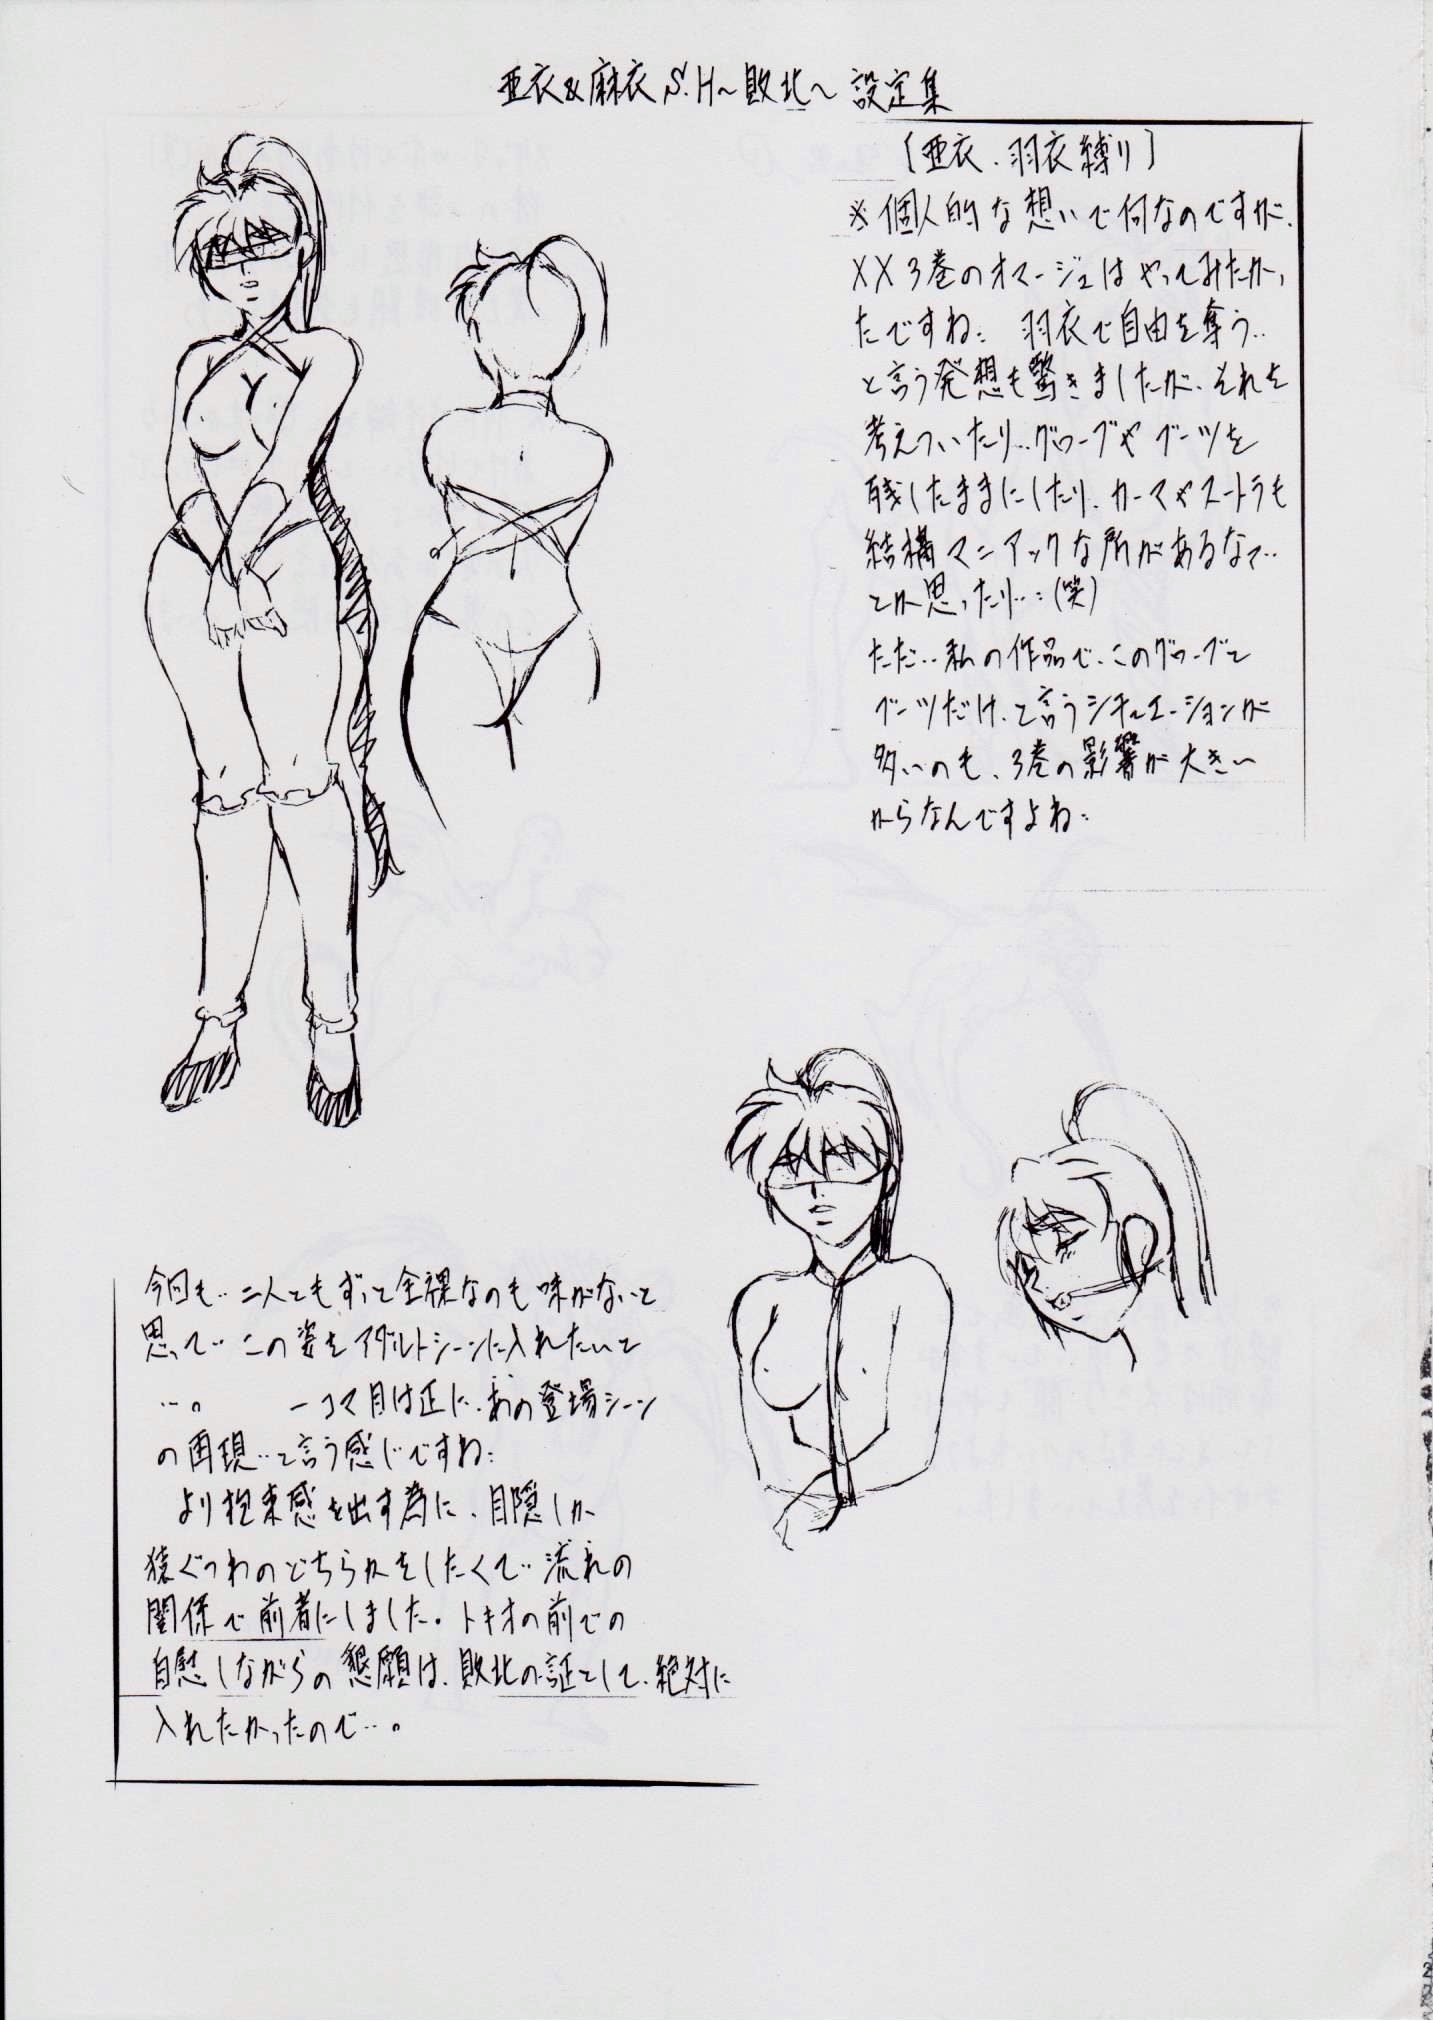 亜衣&麻衣 S.H～敗北～ 設定集
[亜衣.羽衣縛り]
※個人的な想いで何なのですが、
XX3巻のオマージュはやってみたかっ
たですね: 羽衣で自由を奪う‥
と言う発想も驚きましたが、それを
考えついたり‥グローブやブーツを
残したままにしたり、カーマやスートラも
結構マニアックな所があるなって‥
とか思ったり‥:(笑)
ただ‥私の作品で、このグローブと
ブーツだけ、と言うシチュエーションが
多いのも、3巻の影響が大きい
からなんですよね:
今回も‥二人ともずっと全裸なのも味がないと
思って‥この姿をアダルトシーンに入れたいと
‥。 一コマ目は正に、あの登場シーン
の再現‥と言う感じですね:
より拘束感を出す為に、目隠しか
猿ぐつわのどちらかをしたくて‥流れの
関係で前者にしました。トキオの前での
自慰しながらの懇願は、敗北の証として、絶対に
入れたかったので‥。